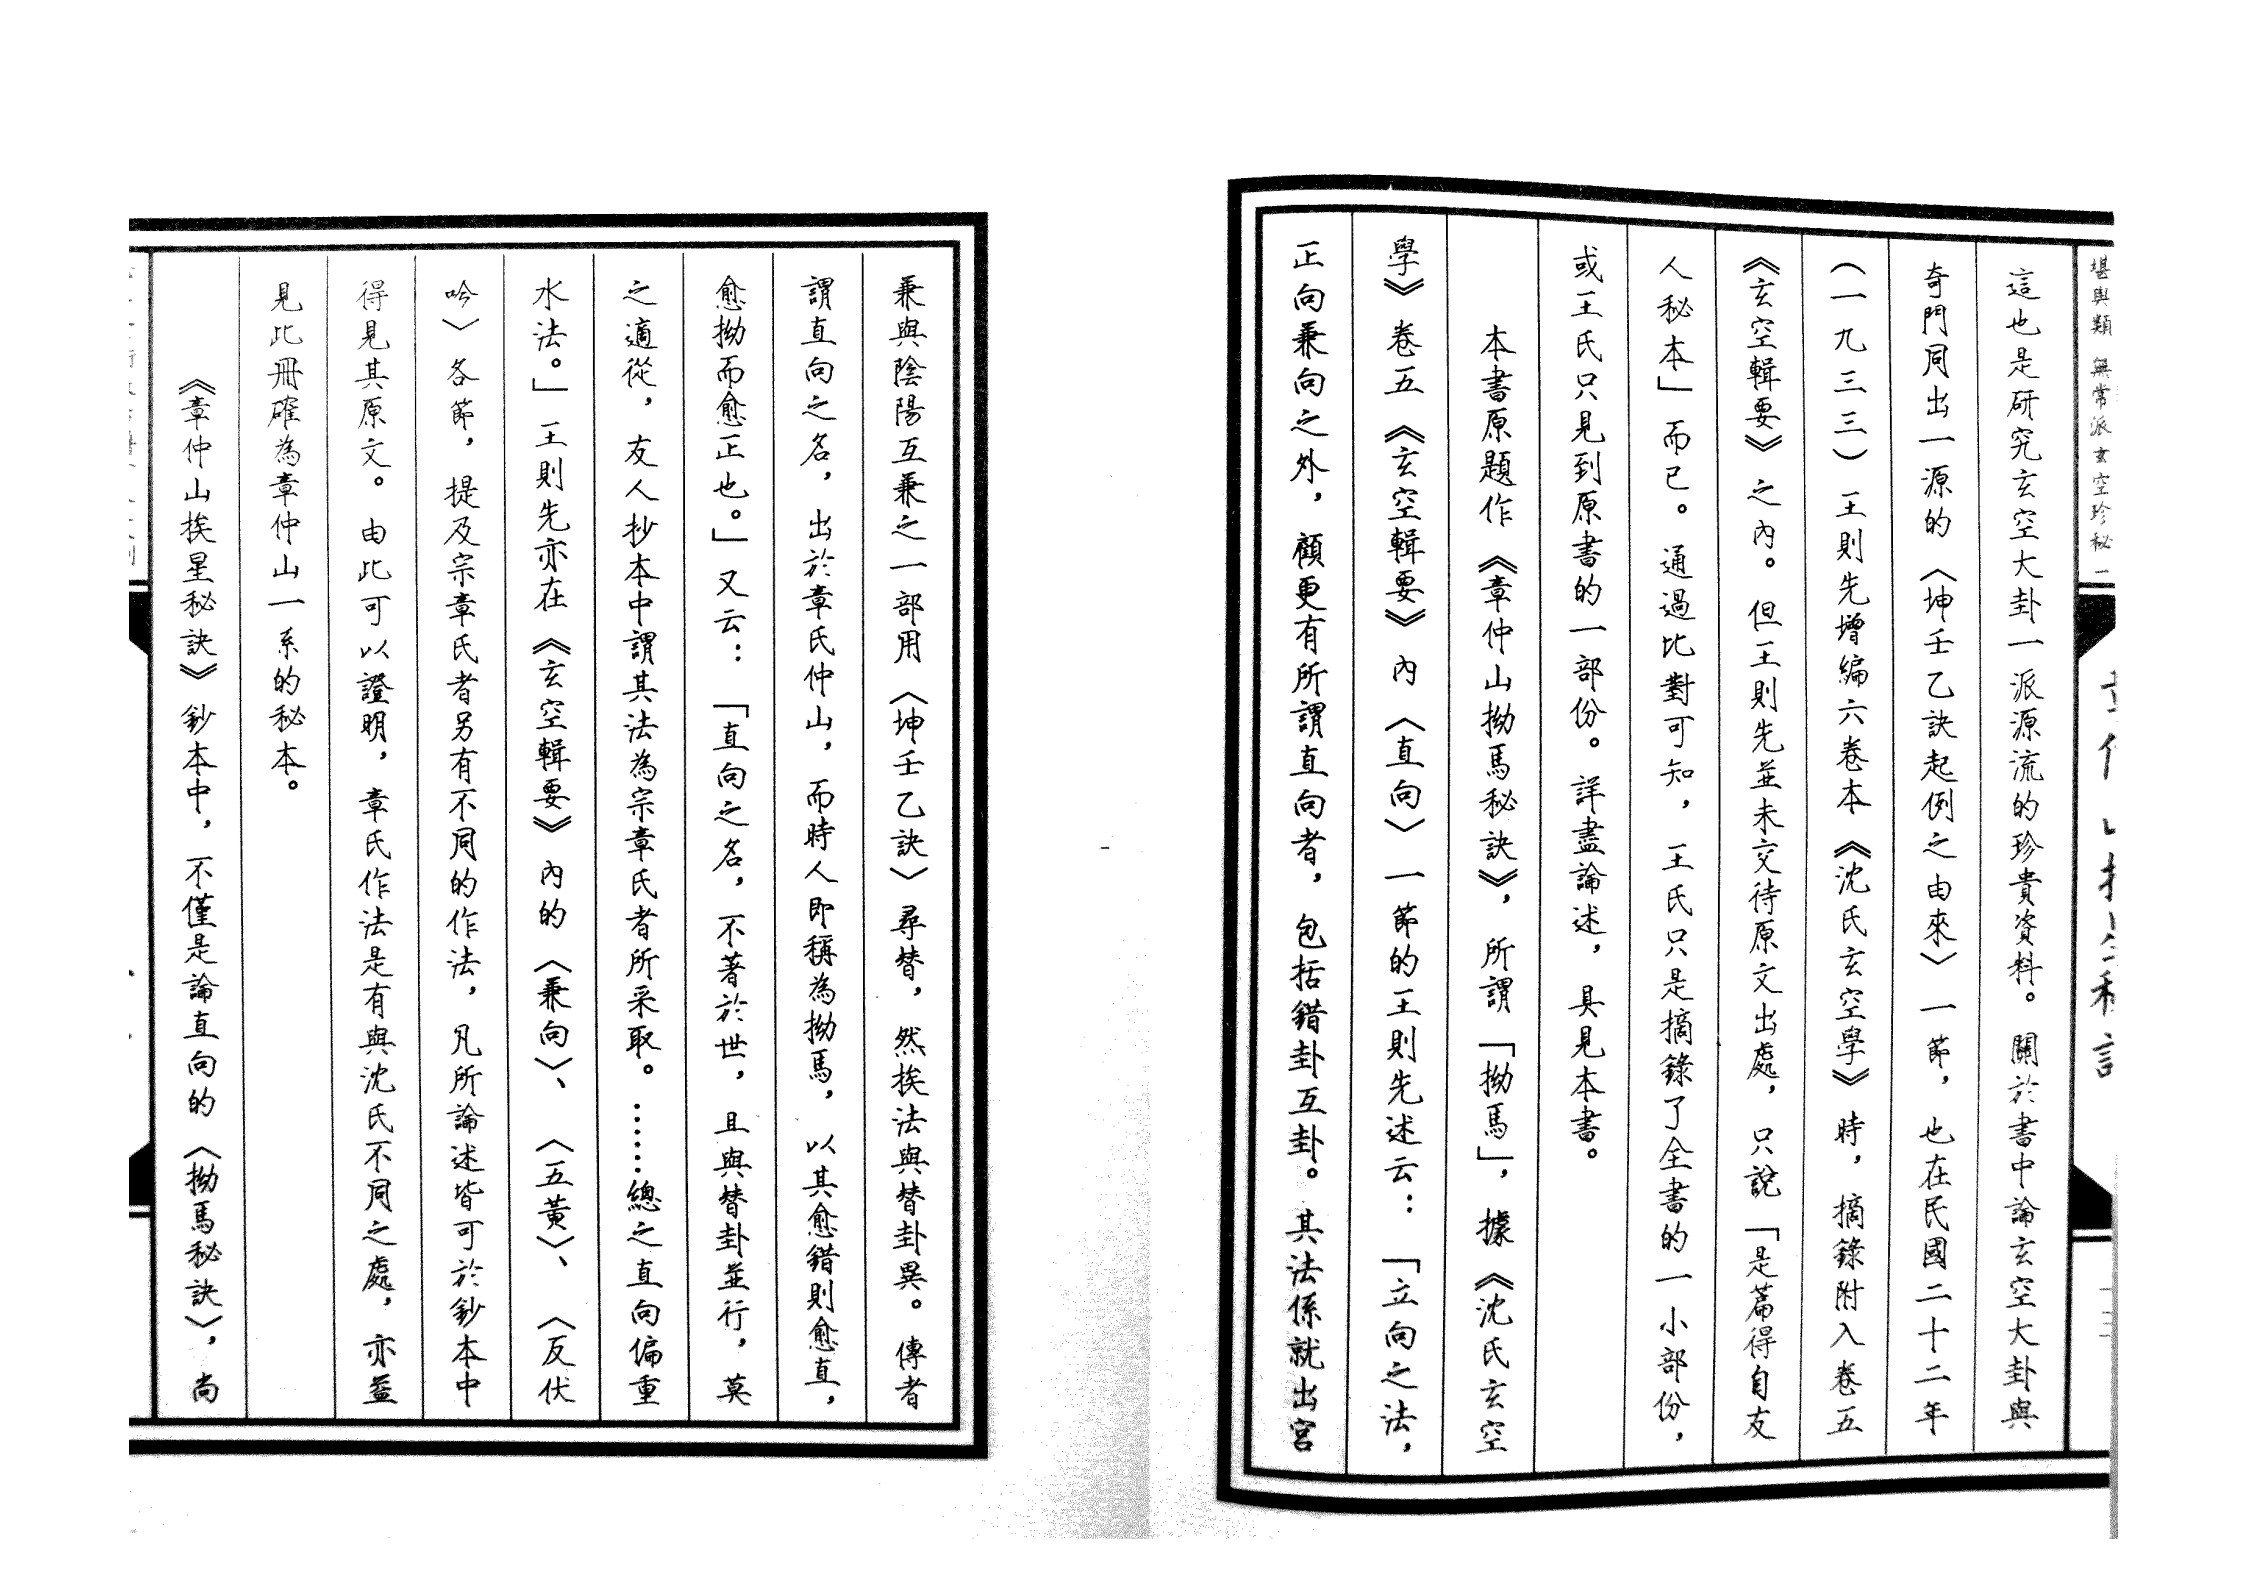 堪輿類 無常派玄空珍秘 二
這也是研究玄空大卦一派源流的珍貴資料。關於書中論玄空大卦與
奇門同出一源的〈坤壬乙訣起例之由來〉一節，也在民國二十二年
（一九三三）王則先增編六卷本《沈氏玄空學》時，摘錄附入卷五
《玄空輯要》之內。但王則先並未交待原文出處，只說「是篇得自友
人秘本」而已。通過比對可知，王氏只是摘錄了全書的一小部份，
或王氏只見到原書的一部份。詳盡論述，具見本書。
本書原題作《章仲山拗馬秘訣》，所謂「拗馬」，據《沈氏玄空
學》卷五《玄空輯要》內〈直向〉一節的王則先述云：「立向之法，
正向兼向之外，顧更有所謂直向者，包括錯卦互卦。其法係就出宮
兼與陰陽互兼之一部用〈坤壬乙訣〉尋替，然挨法與替卦異。傳者
謂直向之名，出於章氏仲山，而時人即稱為拗馬，以其愈錯則愈直，
愈拗而愈正也。」又云：「直向之名，不著於世，且與替卦並行，莫
之適從，友人抄本中謂其法為宗章氏者所采取。……總之直向偏重
水法。」王則先亦在《玄空輯要》內的〈兼向〉、〈五黃〉、〈反伏
吟〉各節，提及宗章氏者另有不同的作法，凡所論述皆可於鈔本中
得見其原文。由此可以證明，章氏作法是有與沈氏不同之處，亦益
見此冊確為章仲山一系的秘本。
《章仲山挨星秘訣》鈔本中，不僅是論直向的〈拗馬秘訣〉，尚